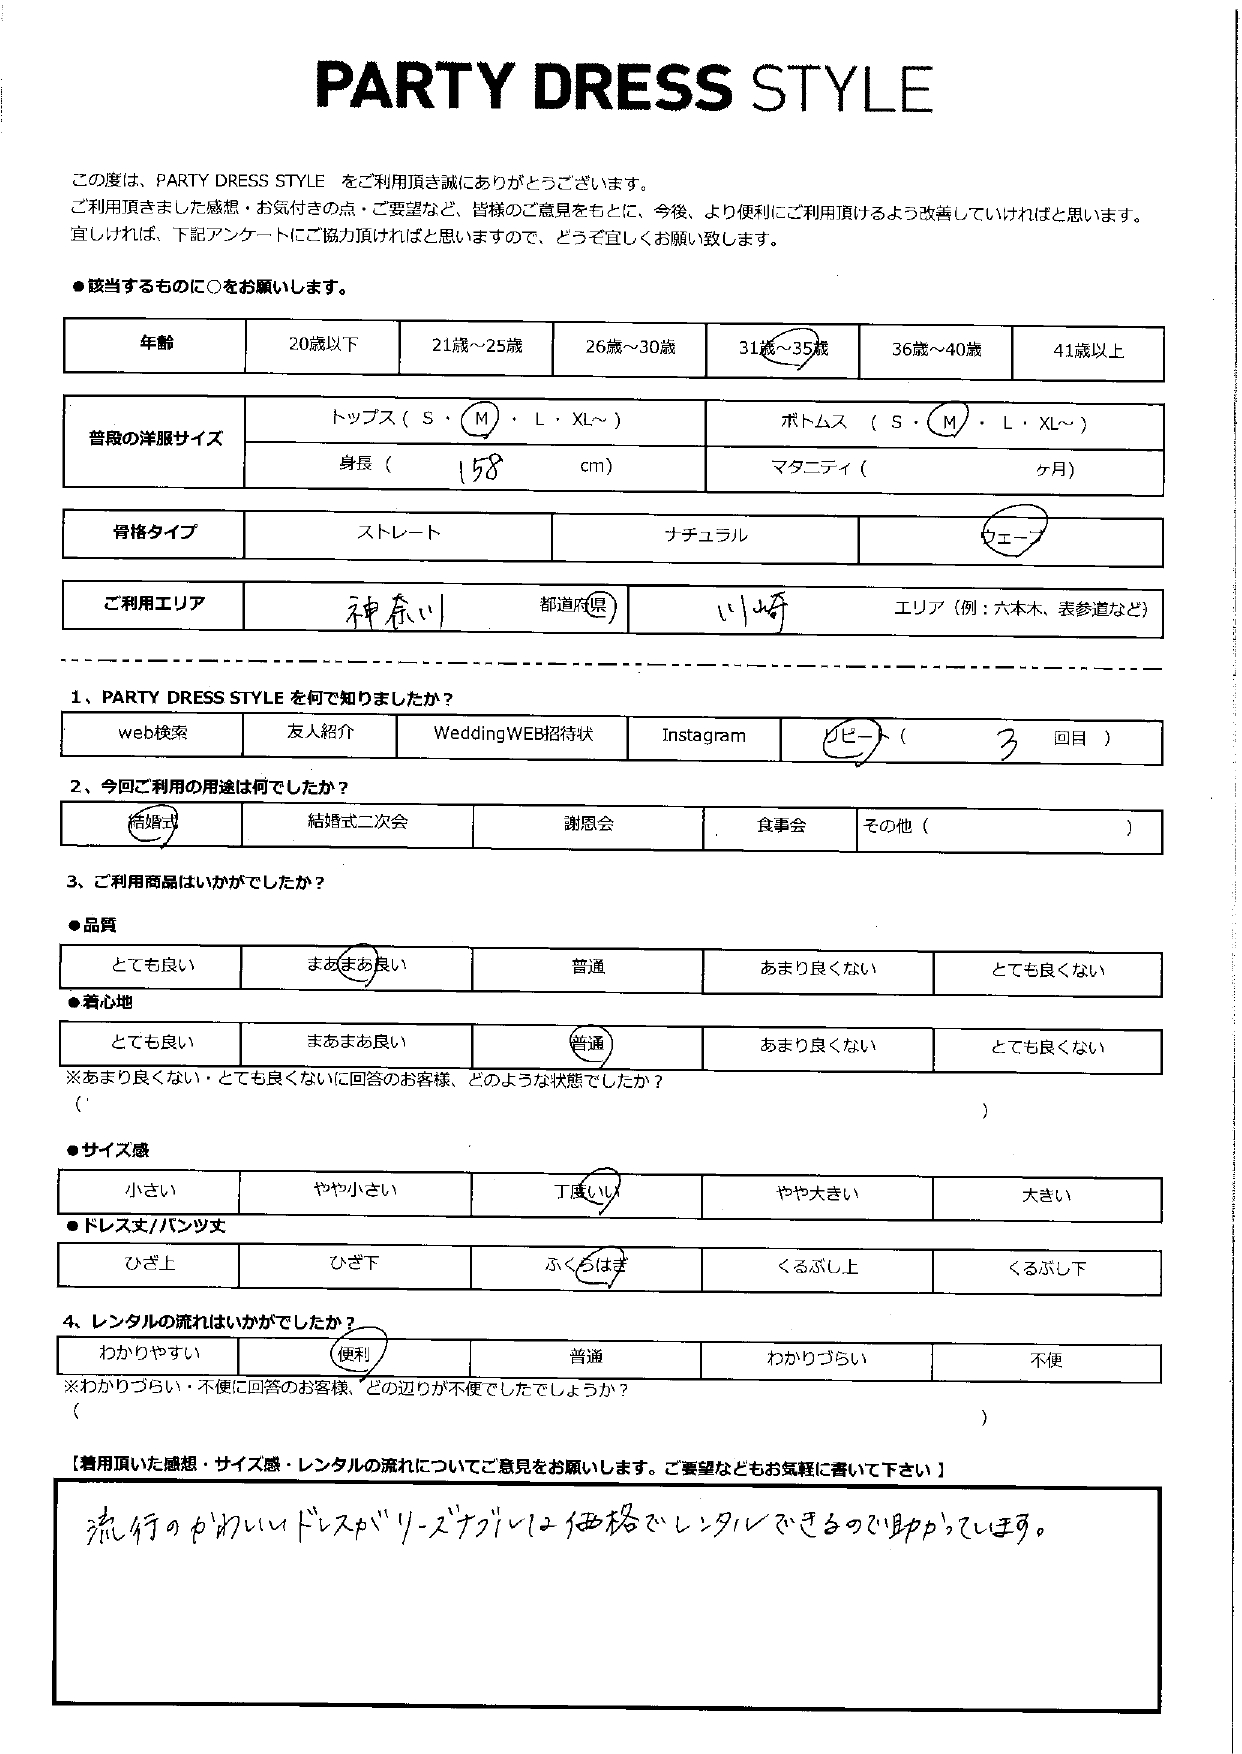 PARTY DRESS STYLE
この度は、PARTY DRESS STYLE をご利用頂き誠にありがとうございます。
ご利用頂きました感想・お気付きの点・ご要望など、皆様のご意見をもとに、今後、より便利にご利用頂けるよう改善していければと思います。
宜しければ、下記アンケートにご協力頂ければと思いますので、どうぞ宜しくお願い致します。
●該当するものに○をお願いします。
年齢 20歳以下 21歳～25歳 26歳～30歳 31歳～35歳 36歳～40歳 41歳以上
普段の洋服サイズ トップス ( S ・ M ・ L ・ XL～ ) ボトムス ( S ・ M ・ L ・ XL～ )
身長 ( 158 cm) マタニティ ( ヶ月)
骨格タイプ ストレート ナチュラル ウェーブ
ご利用エリア 神奈川 都道府県 川崎 エリア（例：六本木、表参道など）
1、PARTY DRESS STYLE を何で知りましたか？
web検索 友人紹介 WeddingWEB招待状 Instagram リピート ( 3 回目 )
2、今回ご利用の用途は何でしたか？
結婚式 結婚式二次会 謝恩会 食事会 その他 ( )
3、ご利用商品はいかがでしたか？
●品質
とても良い まあまあ良い 普通 あまり良くない とても良くない
●着心地
とても良い まあまあ良い 普通 あまり良くない とても良くない
※あまり良くない・とても良くないに回答のお客様、どのような状態でしたか？
( )
●サイズ感
小さい やや小さい 丁度いい やや大きい 大きい
●ドレス丈/パンツ丈
ひざ上 ひざ下 ふくらはぎ くるぶし上 くるぶし下
4、レンタルの流れはいかがでしたか？
わかりやすい 便利 普通 わかりづらい 不便
※わかりづらい・不便に回答のお客様、どの辺りが不便でしたでしょうか？
( )
【着用頂いた感想・サイズ感・レンタルの流れについてご意見をお願いします。ご要望などもお気軽に書いて下さい】
流行のかわいいドレスがリーズナブルな価格でレンタルできるので助かっています。